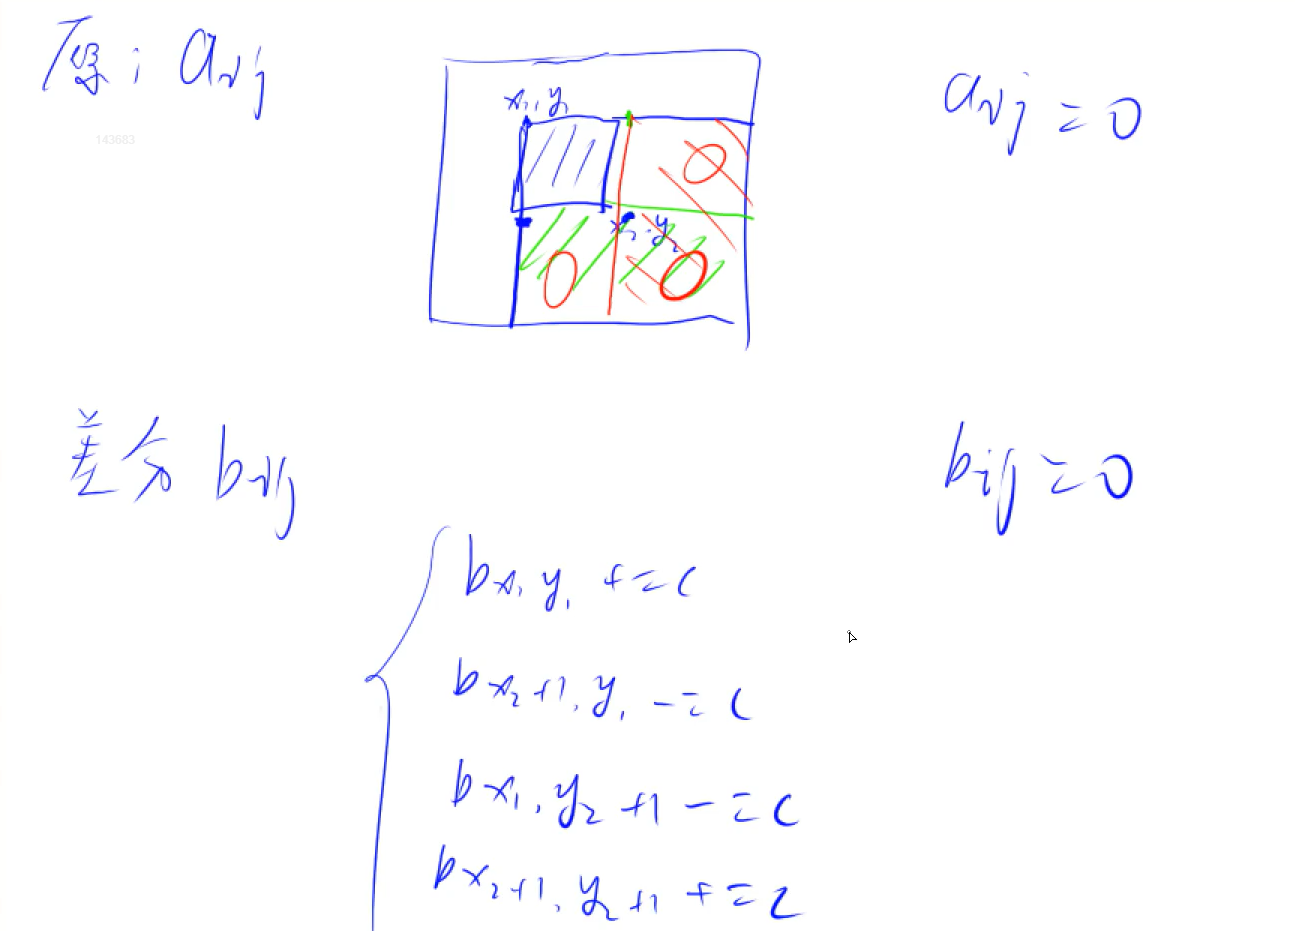 原: aij
aij = 0
143683
x1, y1
0
x2, y2
0
0
差分 bij
bij = 0
bx1 y1 += c
bx2+1, y1 -= c
bx1, y2+1 -= c
bx2+1, y2+1 += c